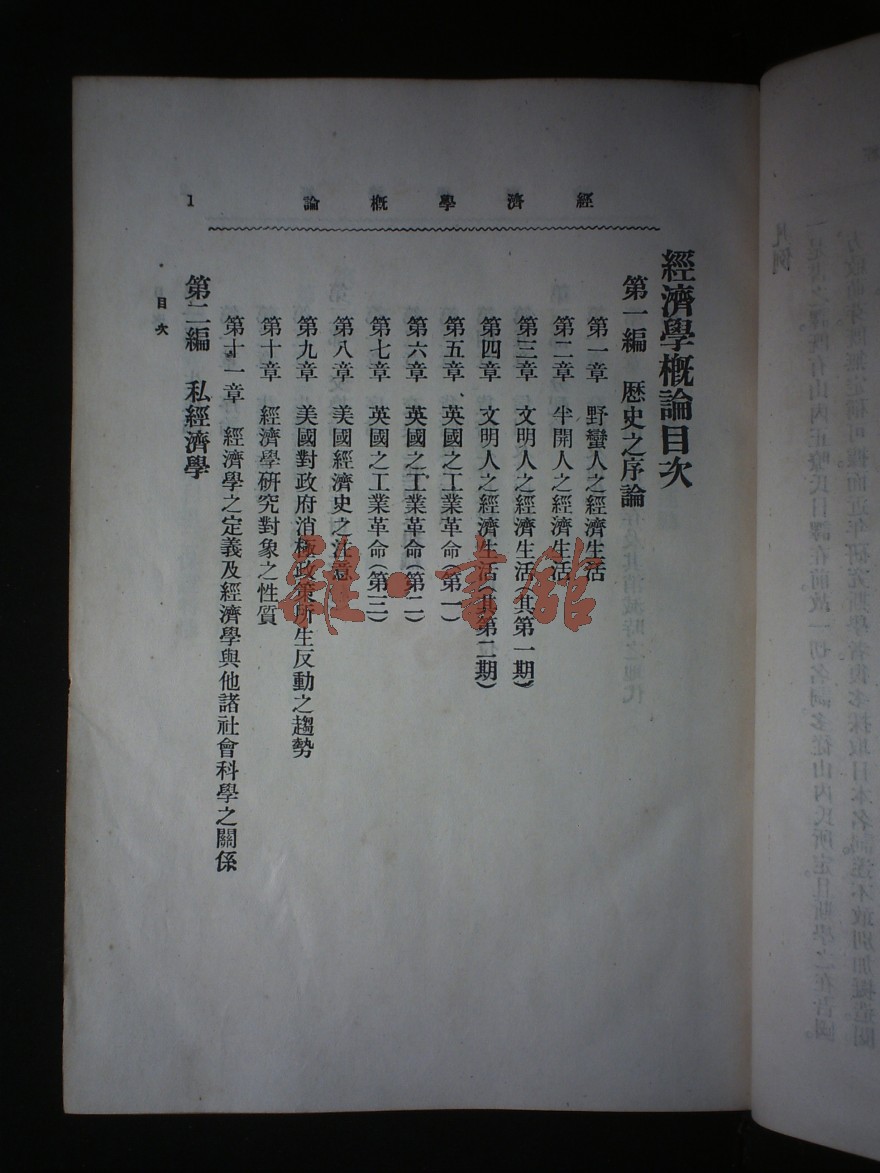 經濟學概論
1
經濟學概論目次
第一編 歷史之序論
第一章 野蠻人之經濟生活
第二章 半開人之經濟生活
第三章 文明人之經濟生活(其第一期)
第四章 文明人之經濟生活(其第二期)
第五章 英國之工業革命(第一)
第六章 英國之工業革命(第二)
第七章 英國之工業革命(第三)
第八章 美國經濟史之注意
第九章 美國對政府消極政策所生反動之趨勢
第十章 經濟學研究對象之性質
第十一章 經濟學之定義及經濟學與他諸社會科學之關係
第二編 私經濟學
目次
雜·書館